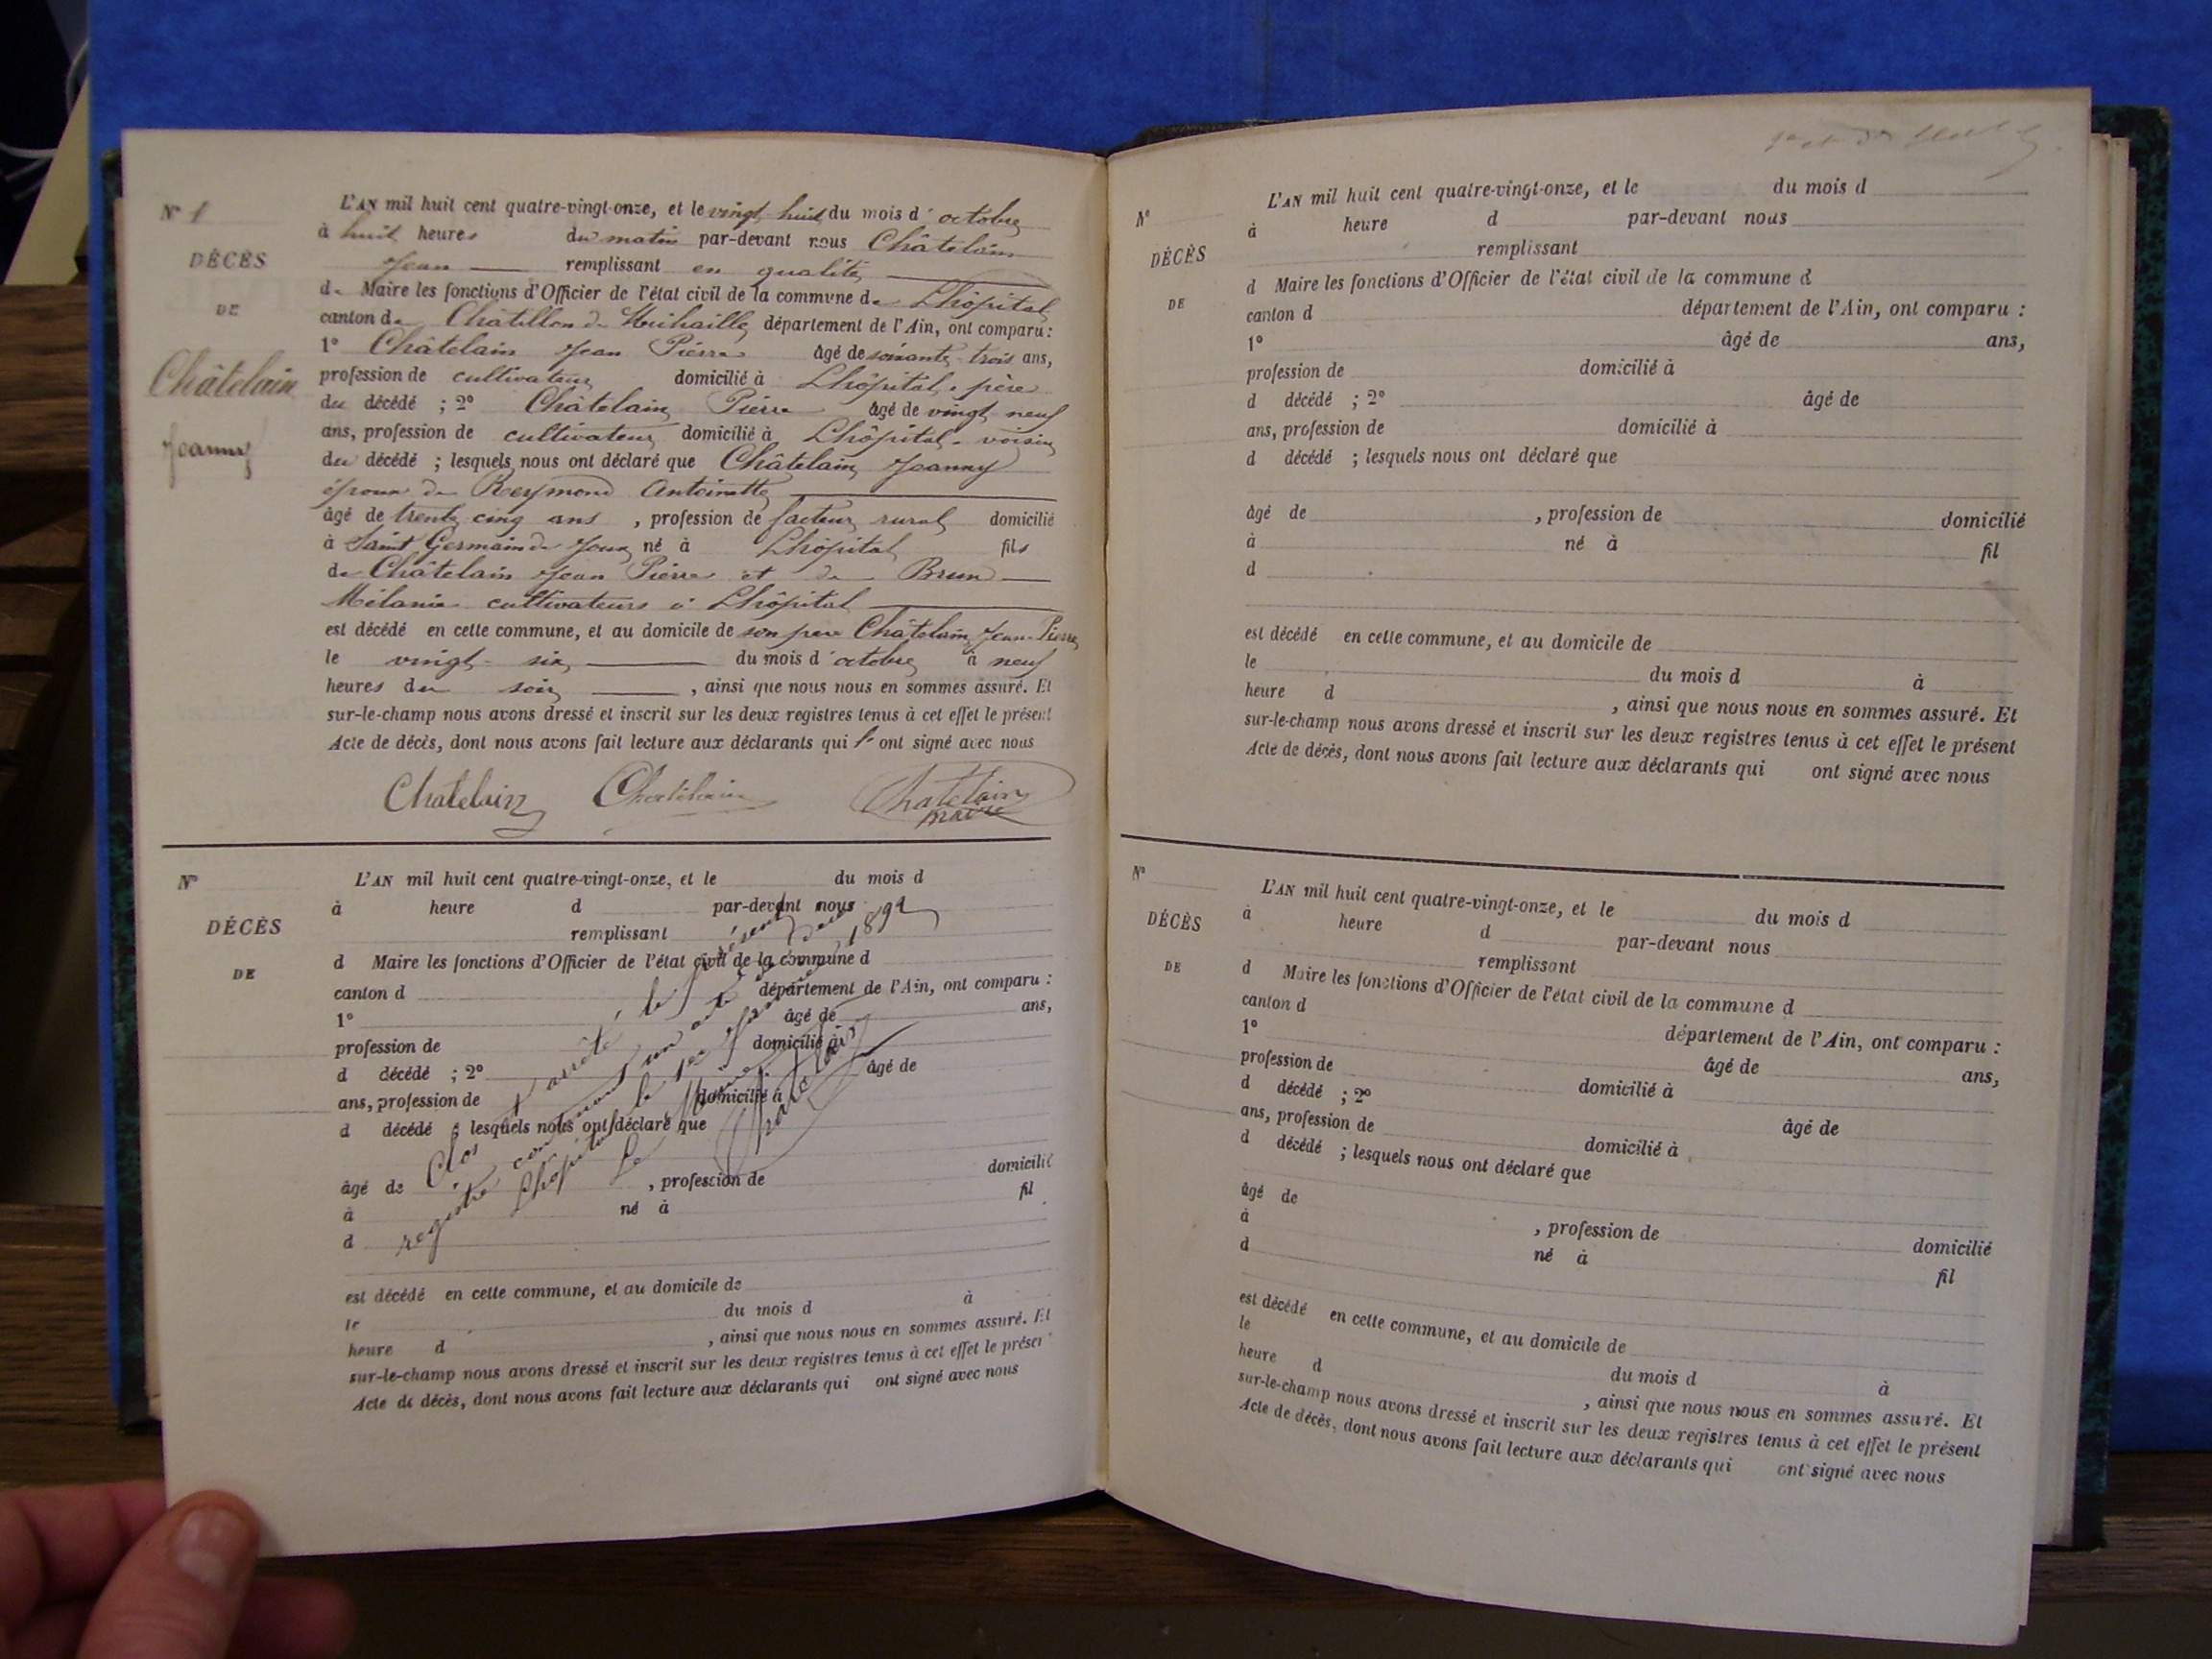 N° 1
DÉCÈS
DE
Châtelain
Joanny
L'AN mil huit cent quatre-vingt-onze, et le vingt huit du mois d'octobre
à huit heures du matin par-devant nous Châtelain
Jean remplissant en qualité
de Maire les fonctions d'Officier de l'état civil de la commune de Lhôpital
canton de Châtillon de Michaille département de l'Ain, ont comparu :
1° Châtelain Jean Pierre âgé de soixante-trois ans,
profession de cultivateur domicilié à Lhôpital, père
du décédé ; 2° Châtelain Pierre âgé de vingt neuf
ans, profession de cultivateur domicilié à Lhôpital, voisin
du décédé ; lesquels nous ont déclaré que Châtelain Joanny
époux de Reymond Antoinette
âgé de trente cinq ans , profession de facteur rural domicilié
à Saint Germain de Joux né à Lhôpital fils
de Châtelain Jean Pierre et de Brun
Mélanie cultivateurs à Lhôpital
est décédé en cette commune, et au domicile de son père Châtelain Jean-Pierre
le vingt-six du mois d'octobre à neuf
heures du soir , ainsi que nous nous en sommes assuré. Et
sur-le-champ nous avons dressé et inscrit sur les deux registres tenus à cet effet le présent
Acte de décès, dont nous avons fait lecture aux déclarants qui l' ont signé avec nous
Chatelain Chatelain Chatelain
maire
N°
DÉCÈS
DE
L'AN mil huit cent quatre-vingt-onze, et le du mois d
à heure d par-devant nous
remplissant
d Maire les fonctions d'Officier de l'état civil de la commune d
canton d département de l'Ain, ont comparu :
1° âgé de ans,
profession de domicilié à
d décédé ; 2° âgé de
ans, profession de domicilié à
d décédé ; lesquels nous ont déclaré que
âgé de , profession de domicilié
à né à fil
d
est décédé en cette commune, et au domicile de
le du mois d à
heure d , ainsi que nous nous en sommes assuré. Et
sur-le-champ nous avons dressé et inscrit sur les deux registres tenus à cet effet le présent
Acte de décès, dont nous avons fait lecture aux déclarants qui ont signé avec nous
Clos et arrêté le présent
registre contenant un acte
Lhôpital le 1er Janvier 1892
Le Maire
Chatelain
N°
DÉCÈS
DE
L'AN mil huit cent quatre-vingt-onze, et le du mois d
à heure d par-devant nous
remplissant
d Maire les fonctions d'Officier de l'état civil de la commune d
canton d département de l'Ain, ont comparu :
1° âgé de ans,
profession de domicilié à
d décédé ; 2° âgé de
ans, profession de domicilié à
d décédé ; lesquels nous ont déclaré que
âgé de , profession de domicilié
à né à fil
d
est décédé en cette commune, et au domicile de
le du mois d à
heure d , ainsi que nous nous en sommes assuré. Et
sur-le-champ nous avons dressé et inscrit sur les deux registres tenus à cet effet le présent
Acte de décès, dont nous avons fait lecture aux déclarants qui ont signé avec nous
N°
DÉCÈS
DE
L'AN mil huit cent quatre-vingt-onze, et le du mois d
à heure d par-devant nous
remplissant
d Maire les fonctions d'Officier de l'état civil de la commune d
canton d département de l'Ain, ont comparu :
1° âgé de ans,
profession de domicilié à
d décédé ; 2° âgé de
ans, profession de domicilié à
d décédé ; lesquels nous ont déclaré que
âgé de , profession de domicilié
à né à fil
d
est décédé en cette commune, et au domicile de
le du mois d à
heure d , ainsi que nous nous en sommes assuré. Et
sur-le-champ nous avons dressé et inscrit sur les deux registres tenus à cet effet le présent
Acte de décès, dont nous avons fait lecture aux déclarants qui ont signé avec nous